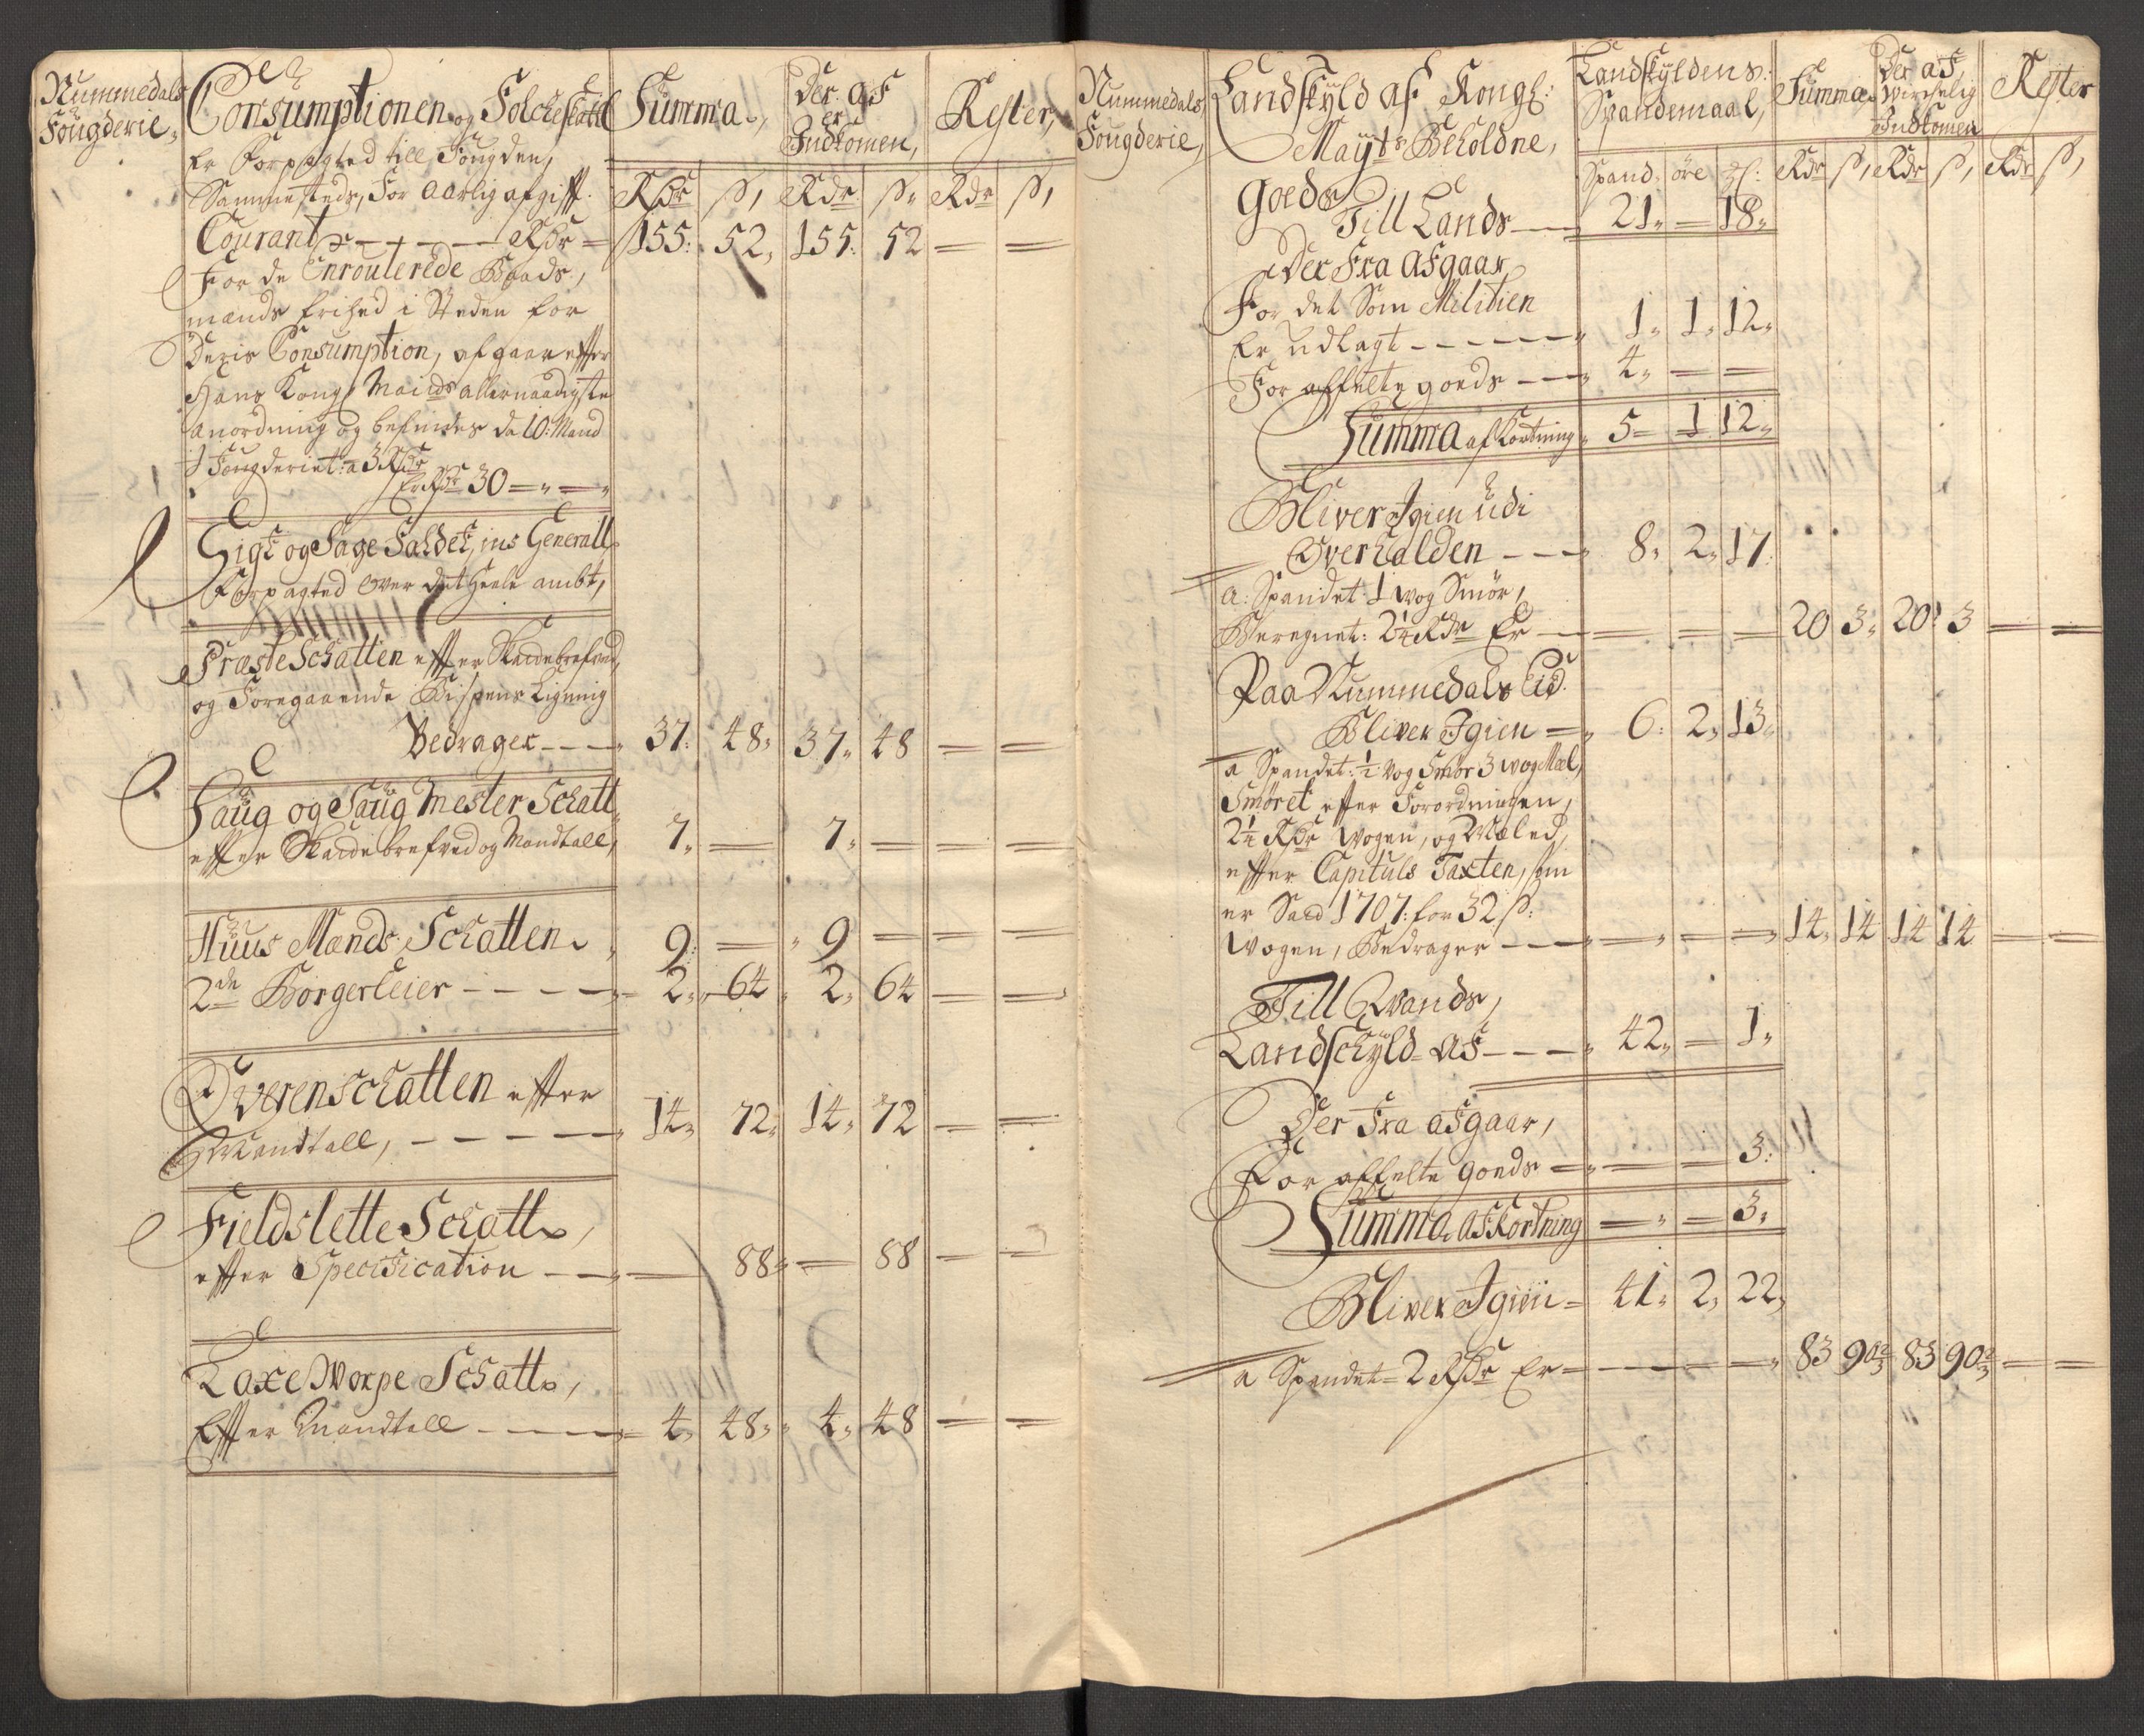 Nummedals
Fougderie,
Consumptionen og Folcheskatt
Er Forpagted till Fougden,
Sammesteds, For aarlig afgifft
Courant - - - - Rdr = 155: 52, 155: 52 = =
For de Enroulerede Baads,
mands frihed i Steden for
Deris Consumption, afgaar effter
Hans Kongl Maits allernaadigste
Anordning og befindes da 10: Mand
I Fougderiet: a 3 Rdr
Er Rdr 30 = „ = „
Summa,
Der af
er
Indkomen,
Rester,
Rdr ß, Rdr ß„ Rdr ß,
Sigt og Sage Faldet, ins Generall
Forpagted over det Heele ambt,
PræsteSchatten effter Skaidebrefved,
og Foregaaende Bispens Ligning
Bedrager - - - 37: 48, 37„ 48 = =
Laug og Laug Mester Schatt
effter Skaidebrefved og Mandtall, 7„ = 7„ = = =
Huus Mands Schatten, 9: = „ 9 = = =
2de Borgerleier - - - - 2„ 64 „ 2„ 64 = =
Qverenschatten effter
Mandtall, - - - - - 14„ 72„ 14„ 72 = =
Fieldslette Schatt,
effter Specification - - = 88„ = 88 = =
Laxe Worpe Schatt,
Effter Mandtall - - - - 4„ 48„ „ 4„ 48 = =
Nummedals
Fougderie,
Landskyld af Kongl:
Mayts Beholdne,
Goeds
Till Lands - - 21„ = 18„
Landskyldens
Spandemaal,
Summa
Der af
Wirchelig
Indkomen
Rester
Spand, öre, Rdr ß, Rdr ß, Rdr ß,
Der Fra Afgaar,
For det Som Militien
Er udlagt - - - - - 1„ 1„ 12„
For affelte goeds - - - 4„ = =
Summa afkortning, 5 = 1 12„
Bliver Igien udi
Overhalden - - - 8„ 2„ 17:
a: Spandet: 1 wog Smör,
Beregnet: 2¼ Rdr Er - = = = 20 3„ 20: 3 = =
Paa Nummedals Eid.
Bliver Igien = 6: 2„ 13„
a Spandet: ½ Vog Smör 3 wog Mæl,
Smöret effter Forordningen,
2¼ Rdr Wogen, og Mæled,
effter Capituls Taxten, som
er Sadd 1707: for 32 ß:
Wogen, Bedrager - - - = = = 14„ 14 14 14 = =
Till Wands,
Landschyld af - - - - 42„ = 1„
Der Fra afgaar,
For affelte goeds = = = 3:
Summa afkortning = „ = 3„
Bliver Igien = 41„ 2, 22,
a Spandet = 2 Rdr Er = - - - = 83 90⅔ 83 90⅔ = =